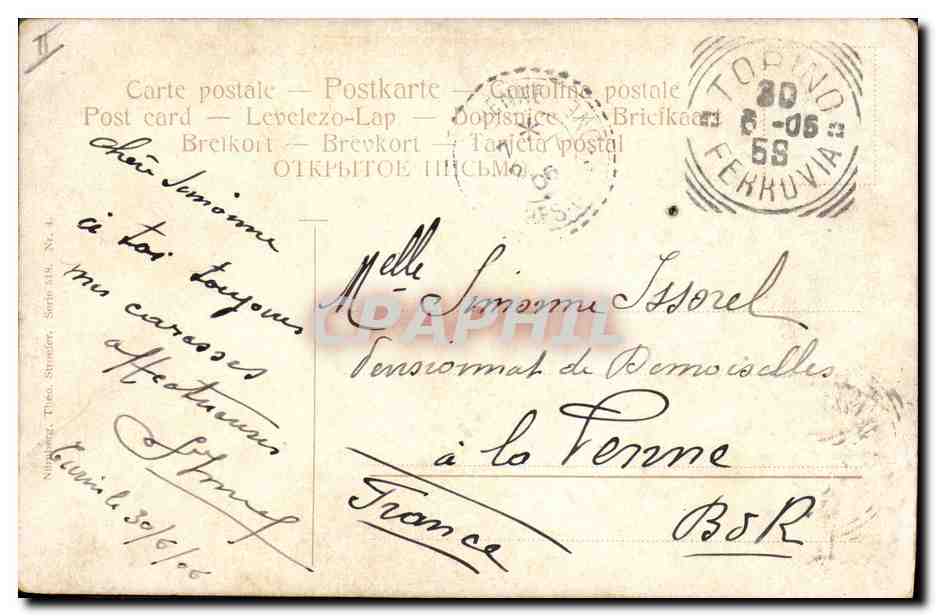 II
Carte postale — Postkarte — Cartolina postale
Post card — Levelező-Lap — Dopisnice — Briefkaart
Brefkort — Brevkort — Tarjeta postal
ОТКРЫТОЕ ПИСЬМО.
TORINO
30
6 -06
5S
FERROVIA
Chère Simonne
à toi toujours
mes caresses
affectueuses
Turin le 30/6/06
Melle Simonne Issorel
Pensionnat de Demoiselles
à la Penne
BdR
France
Nürnberg, Theo. Stroefer, Serie 518. Nr. 4.
CPAPHIL